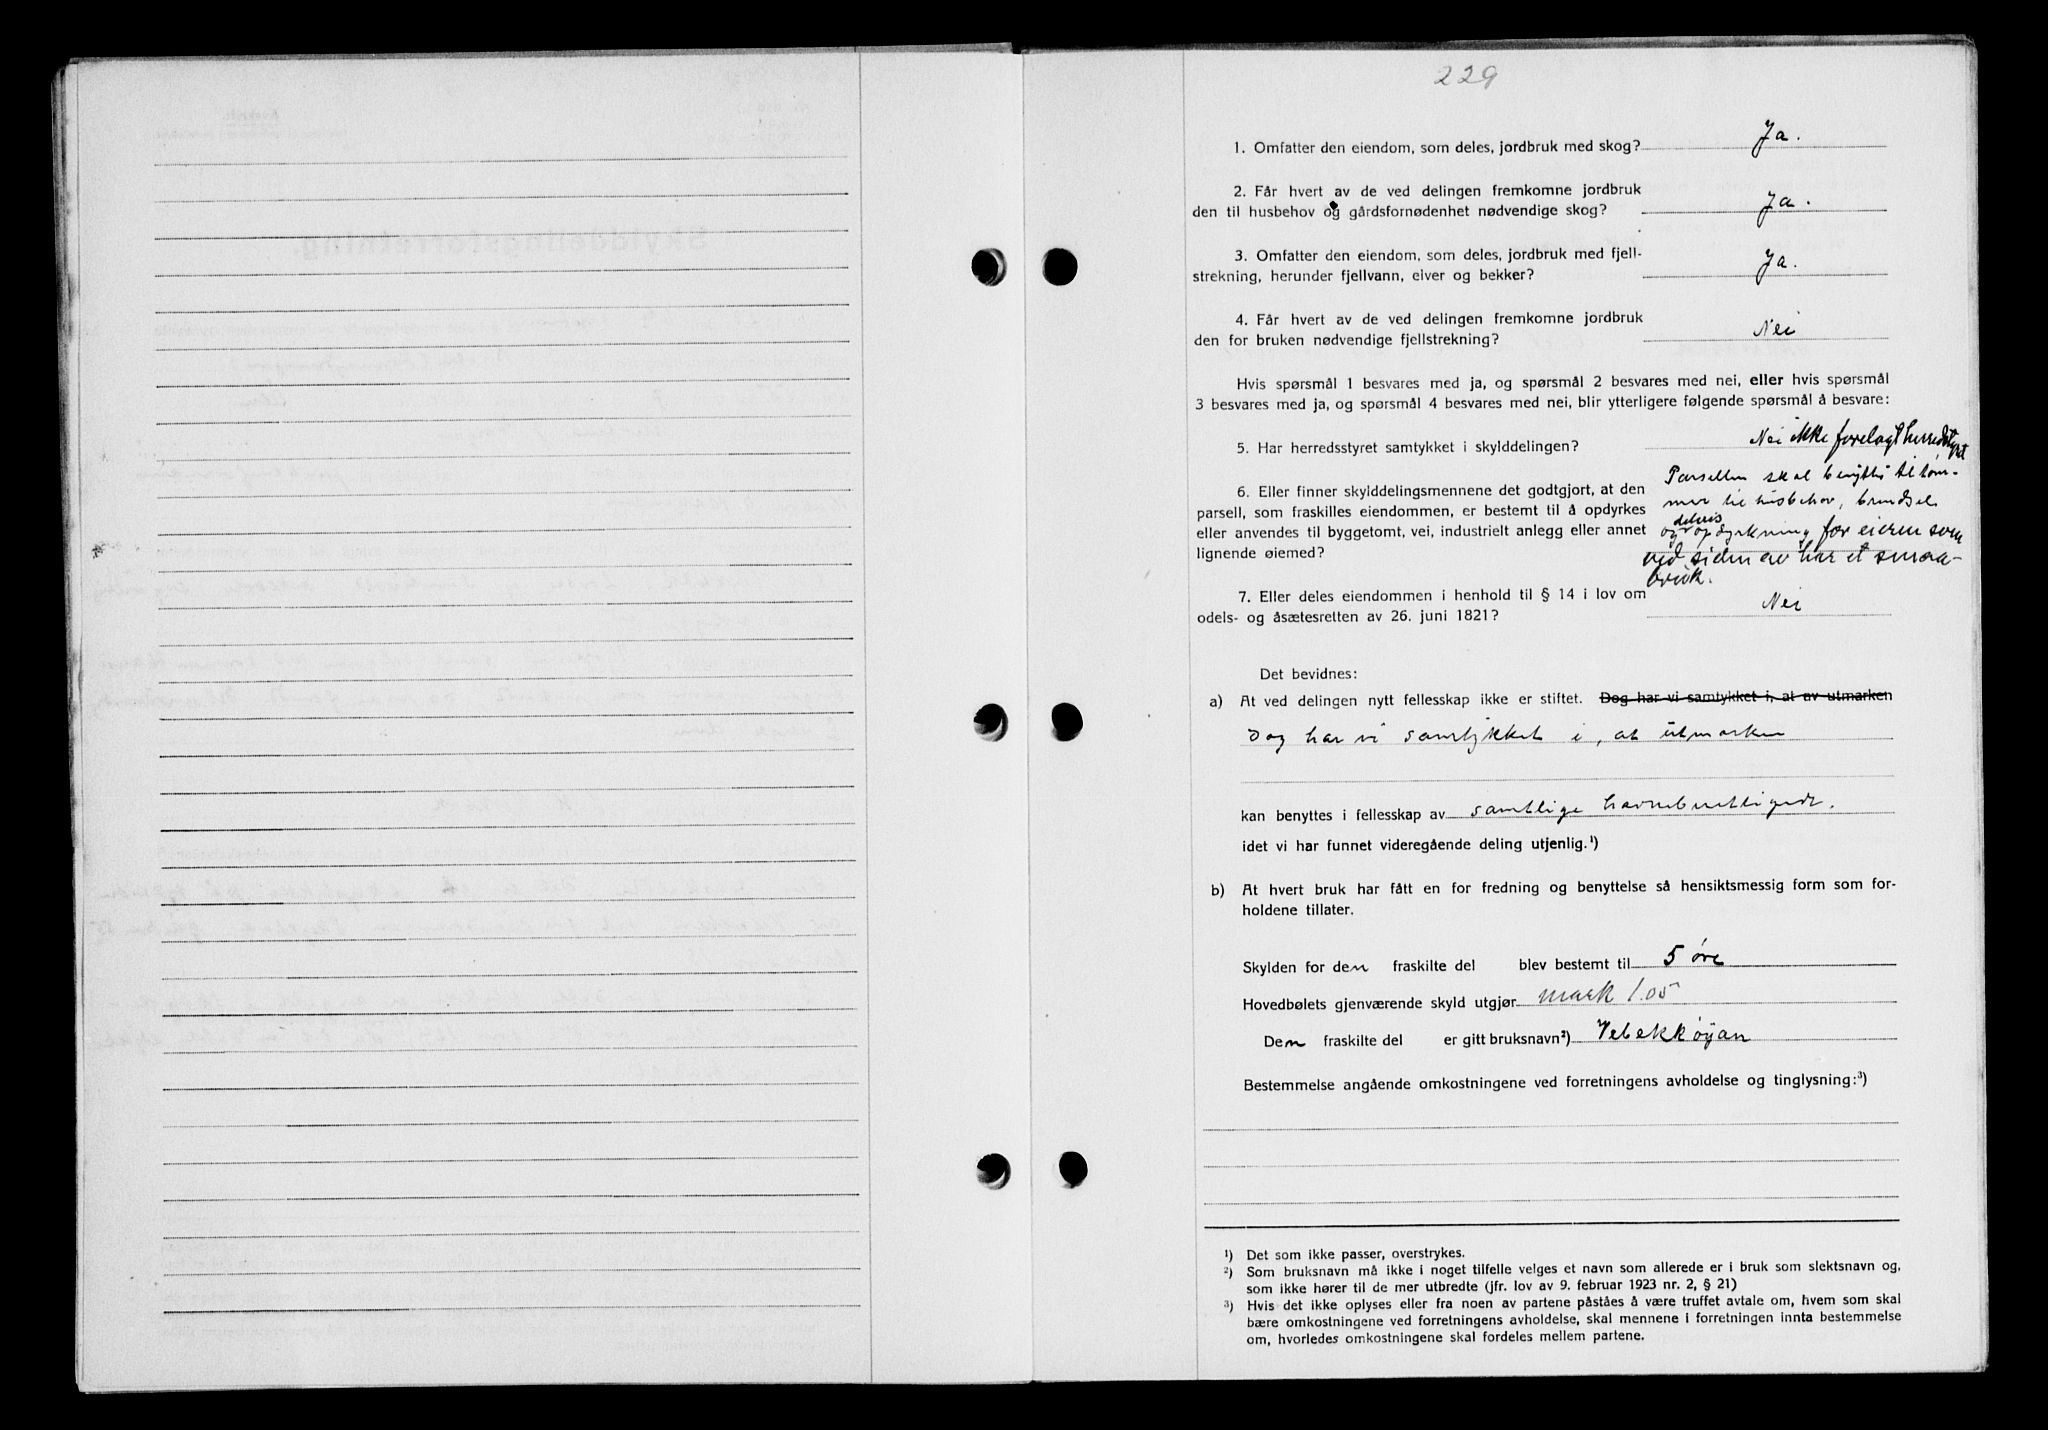 229
1. Omfatter den eiendom, som deles, jordbruk med skog? Ja.
2. Får hvert av de ved delingen fremkomne jordbruk
den til husbehov og gårdsfornødenhet nødvendige skog? Ja.
3. Omfatter den eiendom, som deles, jordbruk med fjell-
strekning, herunder fjellvann, elver og bekker? Ja.
4. Får hvert av de ved delingen fremkomne jordbruk
den for bruken nødvendige fjellstrekning? Nei
Hvis spørsmål 1 besvares med ja, og spørsmål 2 besvares med nei, eller hvis spørsmål
3 besvares med ja, og spørsmål 4 besvares med nei, blir ytterligere følgende spørsmål å besvare:
5. Har herredsstyret samtykket i skylddelingen? Nei ikke forelagt herredstyret
6. Eller finner skylddelingsmennene det godtgjort, at den
parsell, som fraskilles eiendommen, er bestemt til å opdyrkes
eller anvendes til byggetomt, vei, industrielt anlegg eller annet
lignende øiemed?
Parsellen skal benyttes til tøm-
mer til husbehov, brendsel
og delvis opdyrkning for eieren som
ved siden av har et smaa-
bruk.
7. Eller deles eiendommen i henhold til § 14 i lov om
odels- og åsætesretten av 26. juni 1821? Nei
Det bevidnes:
a) At ved delingen nytt fellesskap ikke er stiftet. Dog har vi samtykket i, at av utmarken
Dog har vi samtykket i, at utmarken
kan benyttes i fellesskap av samtlige havneberettigede.
idet vi har funnet videregående deling utjenlig.¹)
b) At hvert bruk har fått en for fredning og benyttelse så hensiktsmessig form som for-
holdene tillater.
Skylden for den fraskilte del blev bestemt til 5 øre
Hovedbølets gjenværende skyld utgjør mark 1.05
Den fraskilte del er gitt bruksnavn²) Vebekkøyan
Bestemmelse angående omkostningene ved forretningens avholdelse og tinglysning:³)
¹) Det som ikke passer, overstrykes.
²) Som bruksnavn må ikke i noget tilfelle velges et navn som allerede er i bruk som slektsnavn og,
som ikke hører til de mer utbredte (jfr. lov av 9. februar 1923 nr. 2, § 21)
³) Hvis det ikke oplyses eller fra noen av partene påståes å være truffet avtale om, hvem som skal
bære omkostningene ved forretningens avholdelse, skal mennene i forretningen innta bestemmelse
om, hvorledes omkostningene skal fordeles mellem partene.